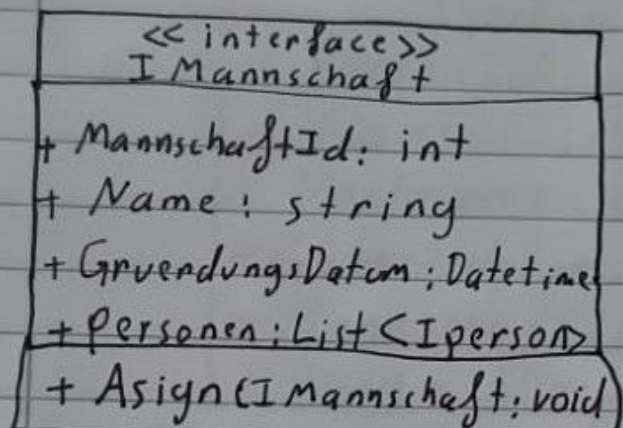 << interface >>
IMannschaft
+ MannschaftId: int
+ Name: string
+ GruendungsDatum: Datetime
+ Personen: List<Iperson>
+ Asign(IMannschaft: void